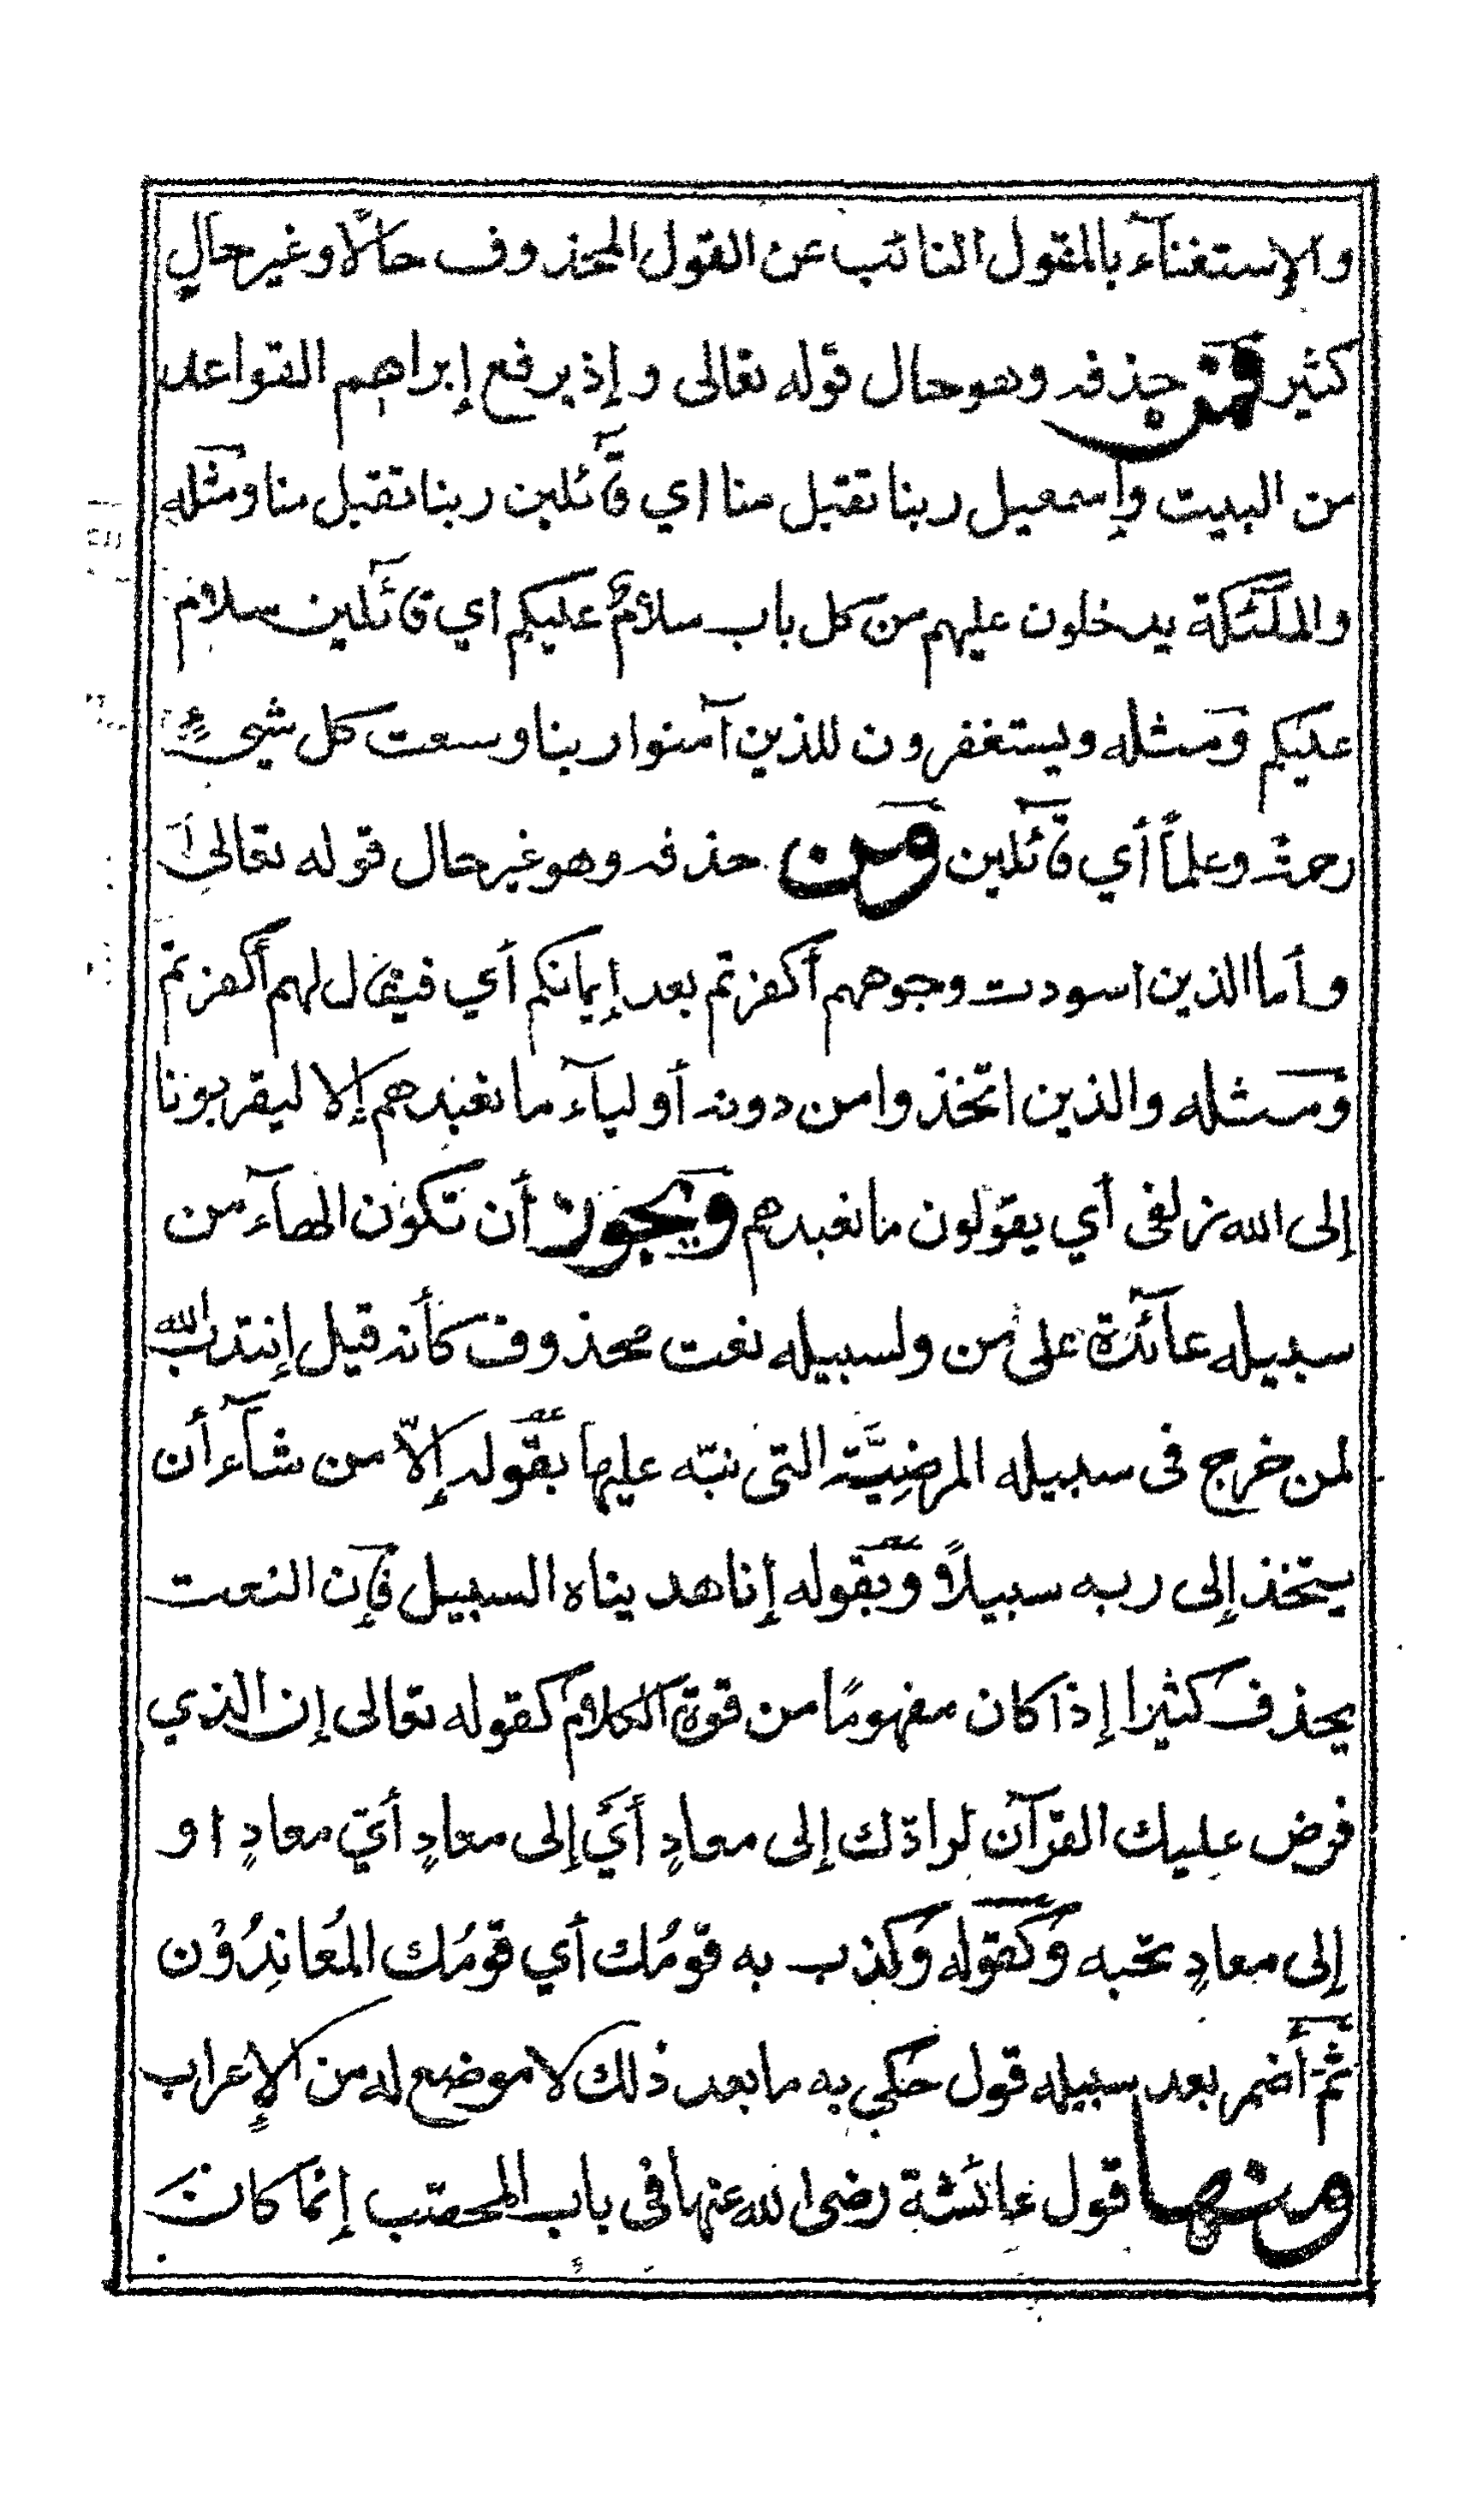 والإستغنآء بالمقول النائب عن القول المحذوف حالًا وغير حالٍ
كثير فمن حذفه وهو حال قوله تعالى وإذ يرفع إبراهيم القواعد
من البيت وإسمعيل ربنا تقبل منا اي قآئلين ربنا تقبل منا ومثله
والملئكة يدخلون عليهم من كل باب سلامٌ عليكم اي قآئلين سلام
عليكم ومثله ويستغفرون للذين آمنوا ربنا وسعت كل شيءٍ
رحمة وعلماً أي قآئلين ومن حذفه وهو غير حال قوله تعالى
وأما الذين اسودت وجوههم أكفرتم بعد إيمانكم أي فيقال لهم أكفرتم
ومثله والذين اتخذوا من دونه أوليآء ما نعبدهم إلا ليقربونا
إلى الله زلفى أي يقولون ما نعبدهم ويجوز أن تكون الهآء من
سبيله عآئدة على من ولسبيله نعت محذوف كأنه قيل إنتدب الله
لمن خرج فى سبيله المرضيَّة التى نبّه عليها بقوله إلّا من شآء أن
يتخذ إلى ربه سبيلاً وبقوله إنا هديناه السبيل فإن النعت
يحذف كثيرا إذا كان مفهومًا من قوة الكلام كقوله تعالى إن الذي
فرض عليك القرآن لرادّك إلى معادٍ أي إلى معادٍ أيّ معادٍ او
إلى معادٍ تحبه وكقوله وكذب به قومُك أي قومُك المُعانِدُوْن
ثم أضمر بعد سبيله قول حكي به ما بعد ذلك لا موضع له من الإعراب
ومنها قول عائشة رضى الله عنها فى باب المحصّب إنما كان